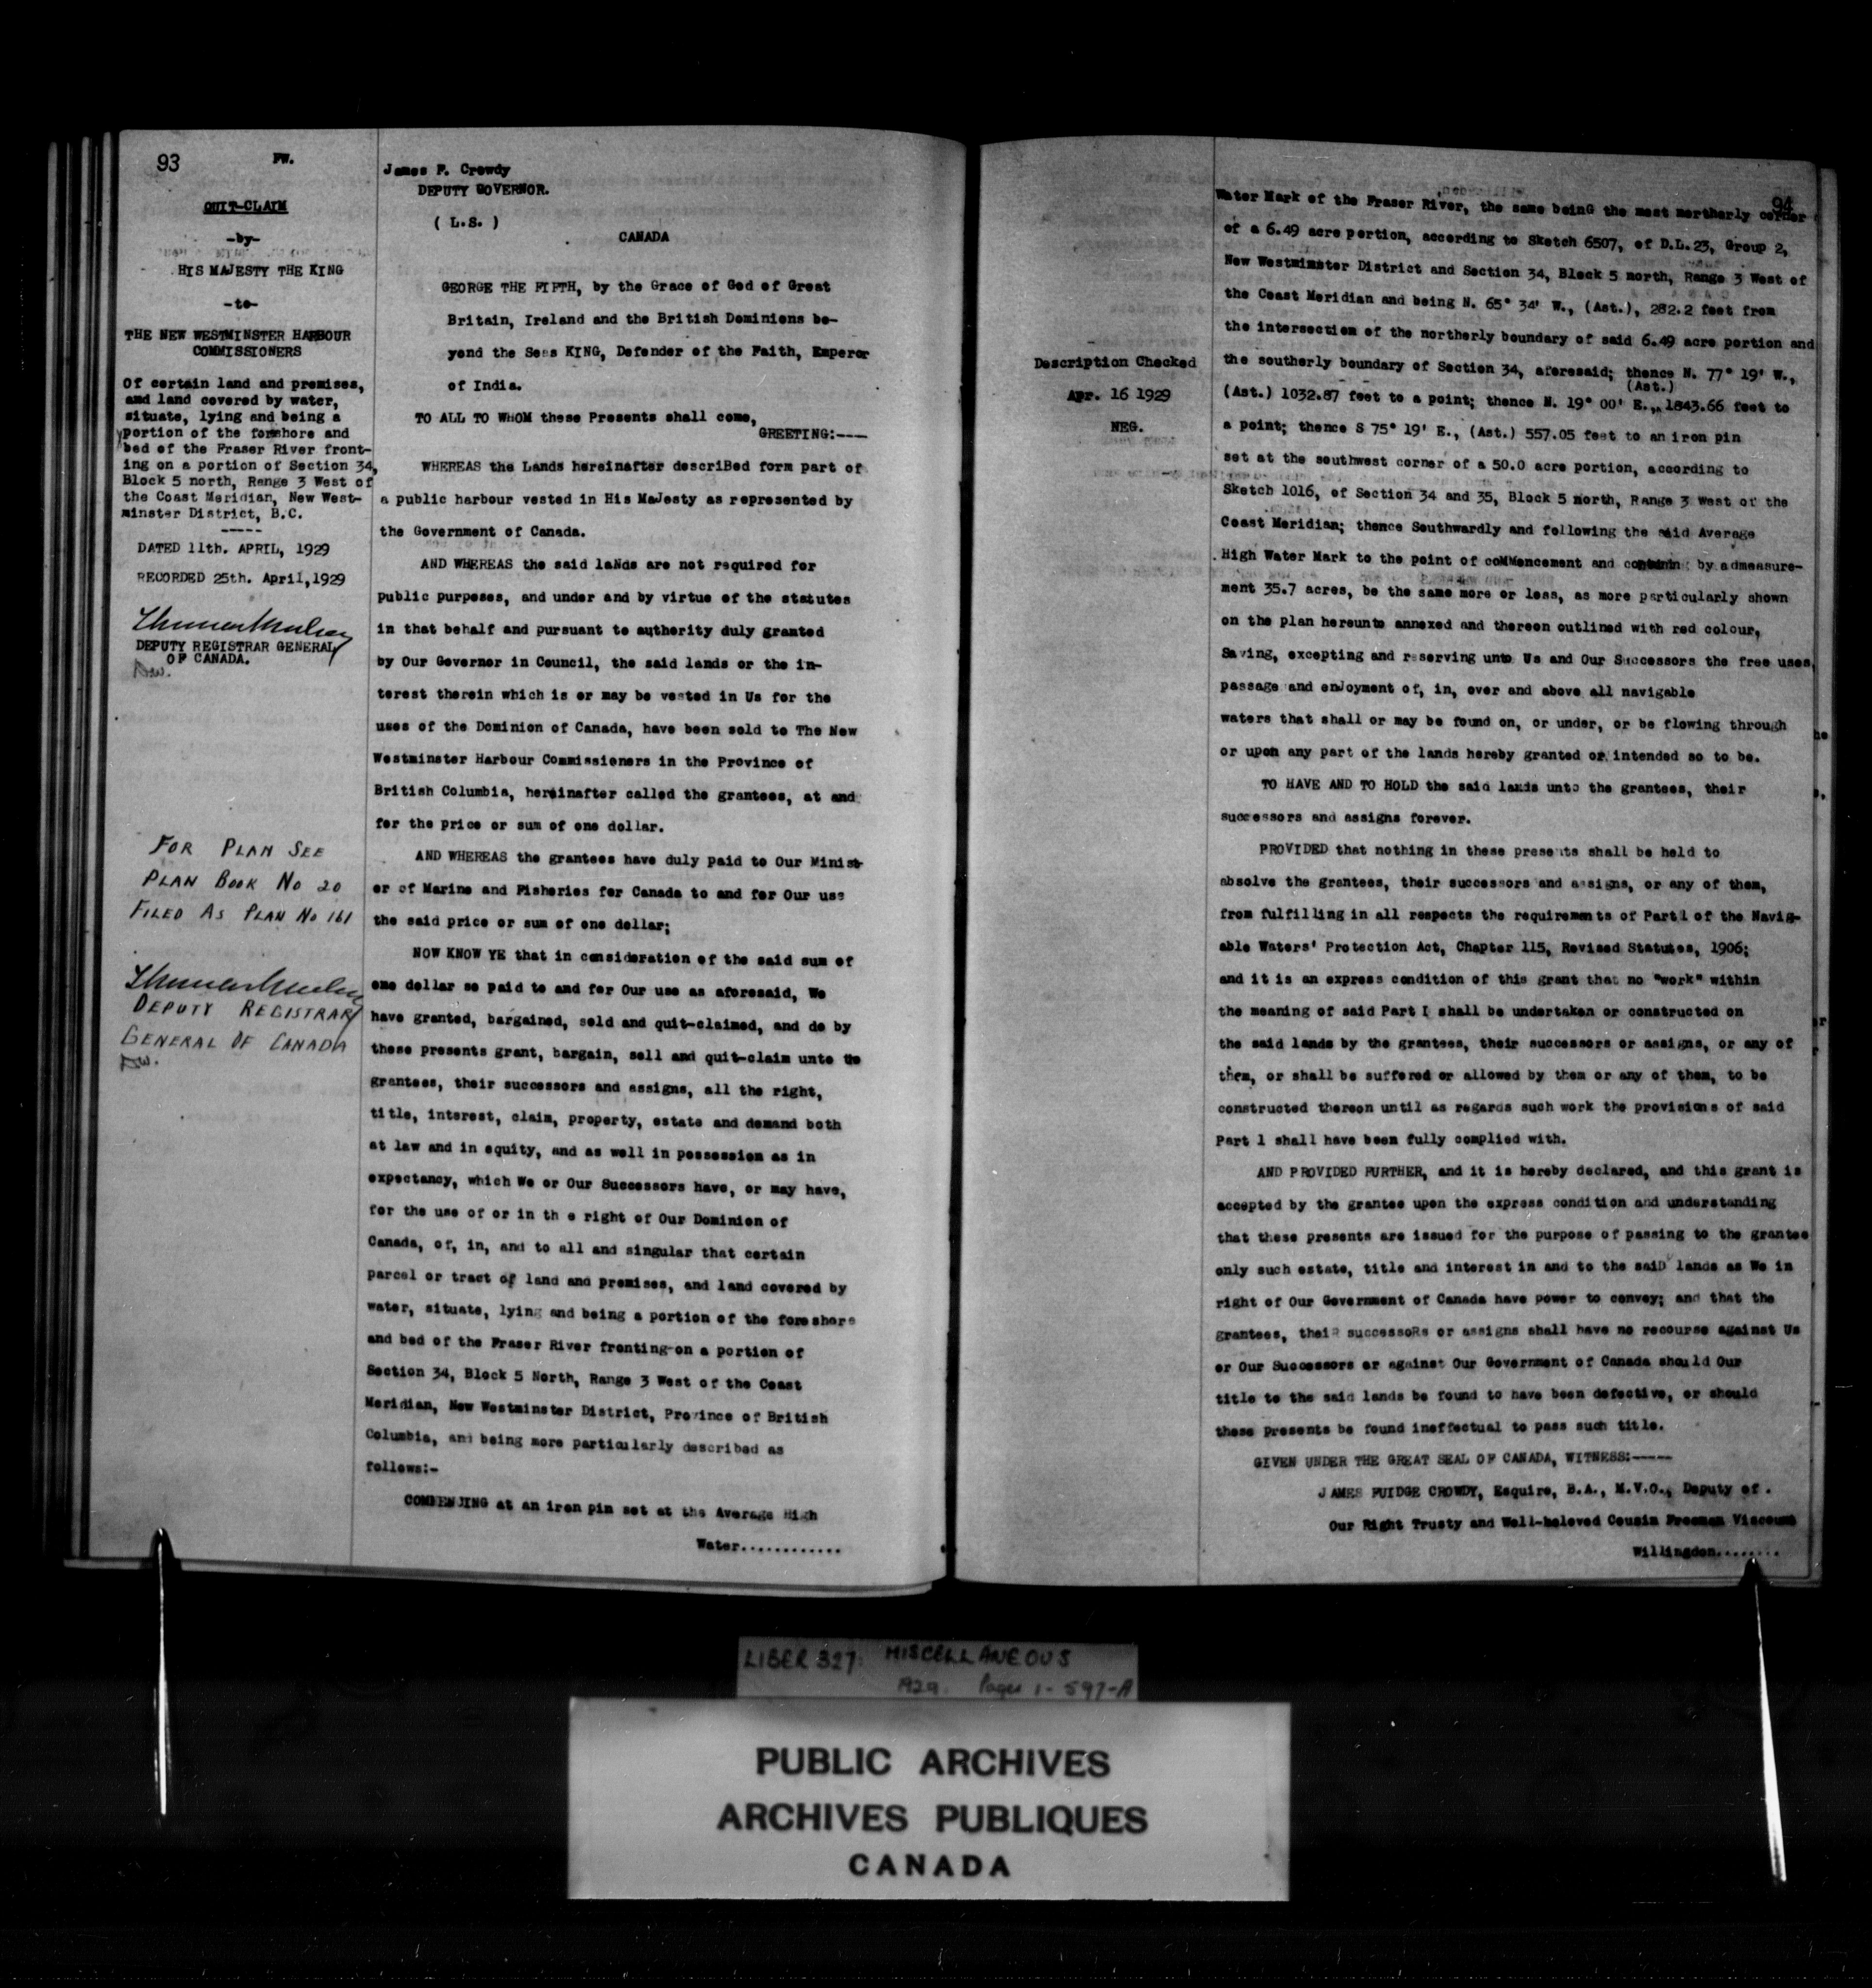 93
PW.
QUIT-CLAIM
-by-
HIS MAJESTY THE KING
-to-
THE NEW WESTMINSTER HARBOUR
COMMISSIONERS
Of certain land and premises,
and land covered by water,
situate, lying and being a
portion of the foreshore and
bed of the Fraser River front-
ing on a portion of Section 34,
Block 5 north, Range 3 West of
the Coast Meridian, New West-
minster District, B.C.
-----
DATED 11th. APRIL, 1929
RECORDED 25th. April, 1929
DEPUTY REGISTRAR GENERAL
OF CANADA.
FOR PLAN SEE
PLAN BOOK No 20
FILED AS PLAN No 161
DEPUTY REGISTRAR
GENERAL OF CANADA
James F. Crowdy
DEPUTY GOVERNOR.
( L.S. )
CANADA
GEORGE THE FIFTH, by the Grace of God of Great
Britain, Ireland and the British Dominions be-
yond the Seas KING, Defender of the Faith, Emperor
of India.
TO ALL TO WHOM these Presents shall come,
GREETING:----
WHEREAS the Lands hereinafter descriBed form part of
a public harbour vested in His MaJesty as represented by
the Government of Canada.
AND WHEREAS the said laNds are not required for
public purposes, and under and by virtue of the statutes
in that behalf and pursuant to authority duly granted
by Our Governor in Council, the said lands or the in-
terest therein which is or may be vested in Us for the
uses of the Dominion of Canada, have been sold to The New
Westminster Harbour Commissioners in the Province of
British Columbia, hereinafter called the grantees, at and
for the price or sum of one dollar.
AND WHEREAS the grantees have duly paid to Our Minist-
er of Marine and Fisheries for Canada to and for Our use
the said price or sum of one dollar;
NOW KNOW YE that in consideration of the said sum of
one dollar so paid to and for Our use as aforesaid, We
have granted, bargained, sold and quit-claimed, and do by
these presents grant, bargain, sell and quit-claim unto the
grantees, their successors and assigns, all the right,
title, interest, claim, property, estate and demand both
at law and in equity, and as well in possession as in
expectancy, which We or Our Successors have, or may have,
for the use of or in th e right of Our Dominion of
Canada, of, in, and to all and singular that certain
parcel or tract of land and premises, and land covered by
water, situate, lying and being a portion of the foreshore
and bed of the Fraser River fronting-on a portion of
Section 34, Block 5 North, Range 3 West of the Coast
Meridian, New Westminster District, Province of British
Columbia, and being more particularly described as
follows:-
COMMENJING at an iron pin set at the Average High
Water............
Description Checked
Apr. 16 1929
NEG.
94
Water Mark of the Fraser River, the same beinG the most northerly corner
of a 6.49 acre portion, according to Sketch 6507, of D.L.23, Group 2,
New Westminster District and Section 34, Block 5 north, Range 3 West of
the Coast Meridian and being N. 65° 34' W., (Ast.), 282.2 feet from
the intersection of the northerly boundary of said 6.49 acre portion and
the southerly boundary of Section 34, aforesaid; thence N. 77° 19' W.,
(Ast.)
(Ast.) 1032.87 feet to a point; thence N. 19° 00' E., 1843.66 feet to
a point; thence S 75° 19' E., (Ast.) 557.05 feet to an iron pin
set at the southwest corner of a 50.0 acre portion, according to
Sketch 1016, of Section 34 and 35, Block 5 north, Range 3 West of the
Coast Meridian; thence Southwardly and following the said Average
High Water Mark to the point of coMMencement and containing by admeasure-
ment 35.7 acres, be the same more or less, as more particularly shown
on the plan hereunto annexed and thereon outlined with red colour,
Saving, excepting and reserving unto Us and Our Successors the free uses,
passage and enJoyment of, in, over and above all navigable
waters that shall or may be found on, or under, or be flowing through
or upon any part of the lands hereby granted or intended so to be.
TO HAVE AND TO HOLD the said lands unto the grantees, their
successors and assigns forever.
PROVIDED that nothing in these presents shall be held to
absolve the grantees, their successors and assigns, or any of them,
from fulfilling in all respects the requirements of Part1 of the Navig-
able Waters' Protection Act, Chapter 115, Revised Statutes, 1906;
and it is an express condition of this grant that no "work" within
the meaning of said Part I shall be undertaken or constructed on
the said lands by the grantees, their successors or assigns, or any of
them, or shall be suffered or allowed by them or any of them, to be
constructed thereon until as regards such work the provisions of said
Part 1 shall have been fully complied with.
AND PROVIDED FURTHER, and it is hereby declared, and this grant is
accepted by the grantee upon the express condition and understanding
that these presents are issued for the purpose of passing to the grantee
only such estate, title and interest in and to the saiD lands as We in
right of Our Government of Canada have power to convey; and that the
grantees, theiR successoRs or assigns shall have no recourse against Us
or Our Successors or against Our Government of Canada should Our
title to the said lands be found to have been defective, or should
these Presents be found ineffectual to pass such title.
GIVEN UNDER THE GREAT SEAL OF CANADA, WITNESS:-----
JAMES FUIDGE CROWDY, Esquire, B.A., M.V.O., Deputy of
Our Right Trusty and Well-beloved Cousin Freeman Viscount
Willingdon........
LIBER 327. MISCELLANEOUS
1929. Pages 1-597-A
PUBLIC ARCHIVES
ARCHIVES PUBLIQUES
CANADA